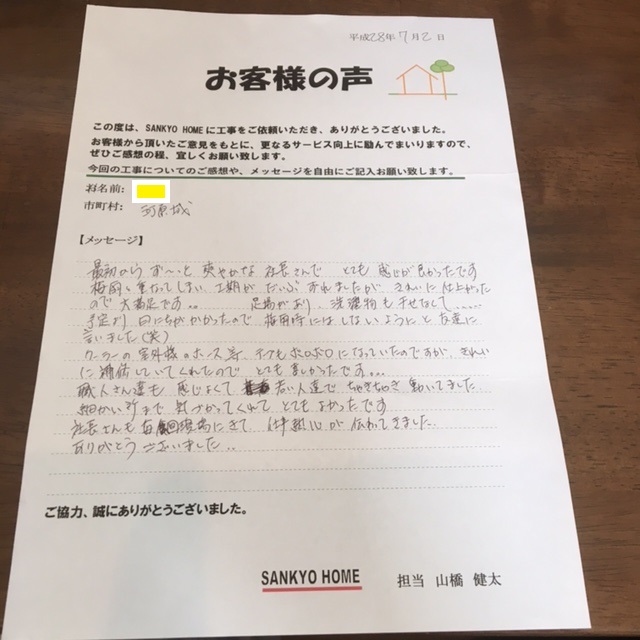 平成28年7月2日
お客様の声
この度は、SANKYO HOMEに工事をご依頼いただき、ありがとうございました。
お客様から頂いたご意見をもとに、更なるサービス向上に励んでまいりますので、
ぜひご感想の程、宜しくお願い致します。
今回の工事についてのご感想や、メッセージを自由にご記入お願い致します。
お名前:
市町村: 河原城
【メッセージ】
最初からず〜と爽やかな社長さんで とても感じが良かったです
梅雨と重なってしまい、工期がだいぶずれましたが きれいに仕上がった
ので大満足です.. 足場があり、洗濯物も干せなくて......
予定より日にちがかかったので梅雨時にはしないようにと友達に
言いました(笑)
クーラーの室外機のホース等、テープもボロボロになっていたのですが、きれい
に補修していてくれたので とても嬉しかったです...
職人さん達も 感じよくて 若い人達で ちゃきちゃき動いてました
細かい所まで 気づかってくれて とてもよかったです
社長さんも毎回現場にきて 仕事熱心が伝わってきました
ありがとうございました..
ご協力、誠にありがとうございました。
SANKYO HOME 担当 山橋 健太